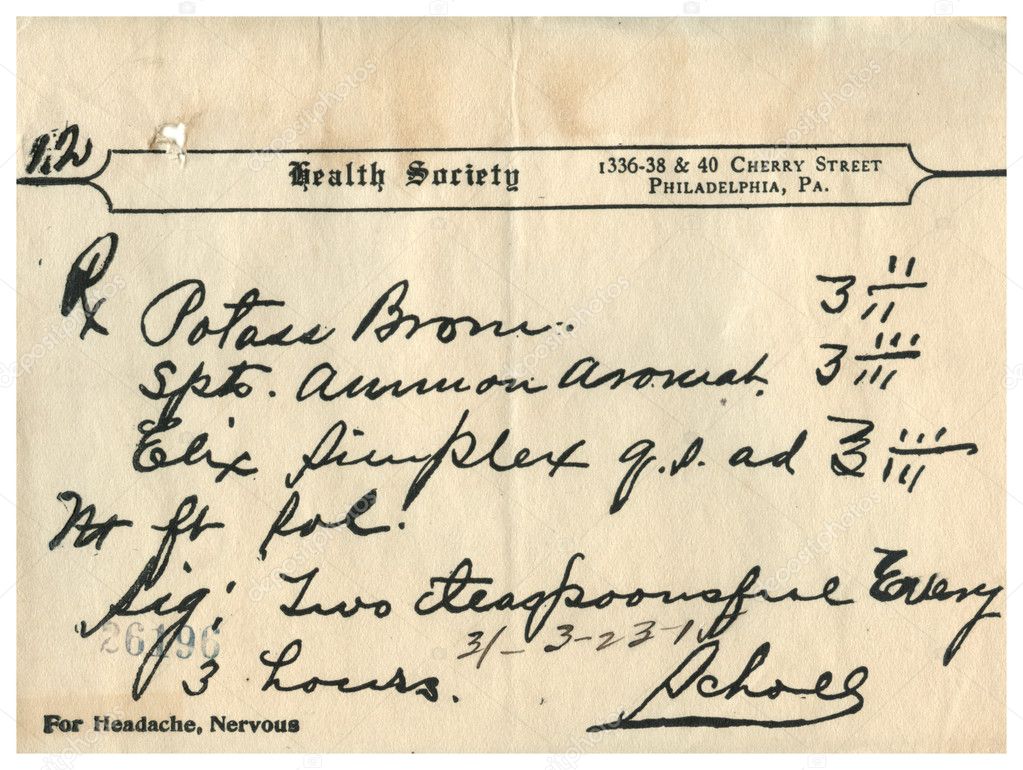 12
Health Society 1336-38 & 40 Cherry Street
Philadelphia, Pa.
Rx Potass Brom. ʒ ii
Spts. Ammon Aromat. ʒ iii
Elix Simplex q.s. ad ℥ iii
M ft Sol.
Sig: Two teaspoonsful Every
26196
3 hours.
For Headache, Nervous